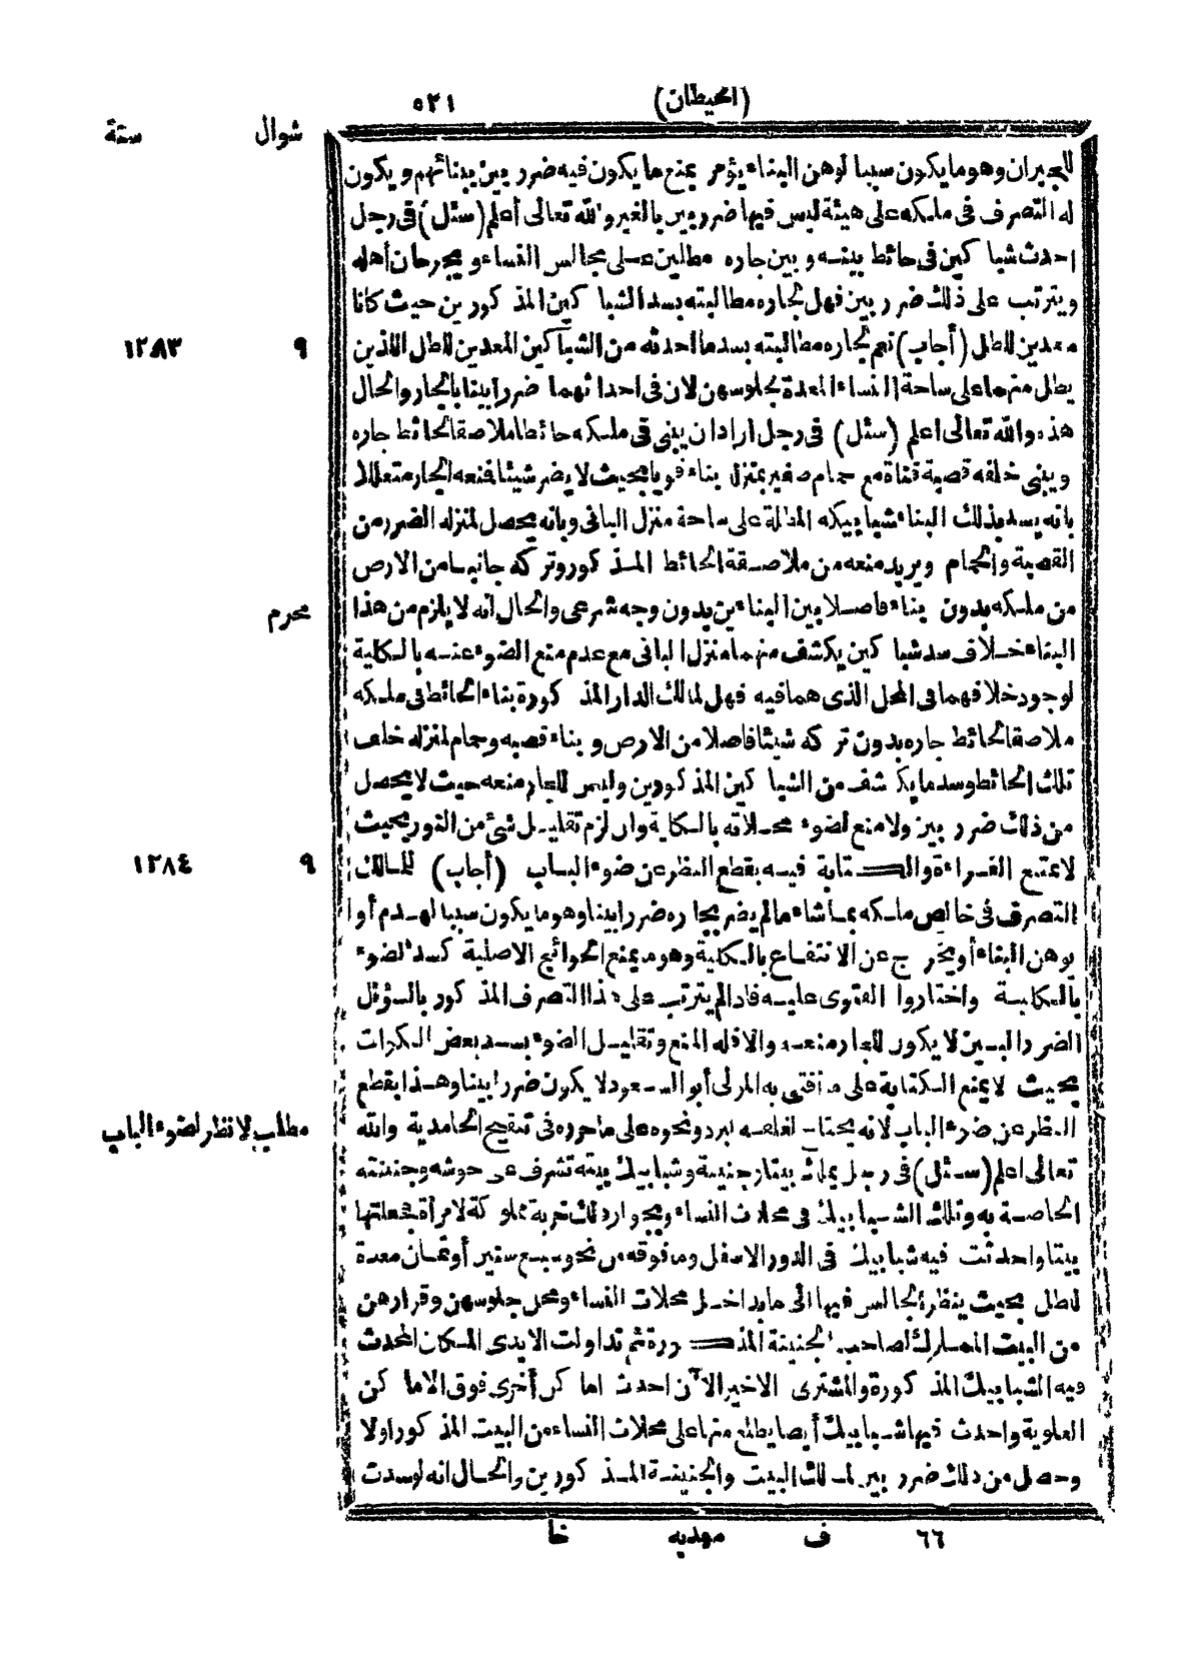 (الحيطان) ٥٢١
شوال سنة
للجيران وهو ما يكون سببا لوهن البناء يؤمر بمنع ما يكون فيه ضرر بين ببنائهم ويكون
له التصرف فى ملكه على هيئة ليس فيها ضرر بين بالغير والله تعالى أعلم (سئل) فى رجل
احدث شبا كين فى حائط بينه وبين جاره مطلين على مجالس النساء ومجرحان أهله
ويترتب على ذلك ضرر بين فهل لجاره مطالبته بسد الشبا كين المذ كورين حيث كانا
معدين للطل (أجاب) نعم لجاره مطالبته بسد ما احدثه من الشبا كين المعدين للطل اللذين ٩ ١٢٨٣
يطل منهما على ساحة النساء المعدة لجلوسهن لان فى احداثهما ضررا بينا بالجار والحال
هذه والله تعالى اعلم (سئل) فى رجل اراد ان يبنى فى ملكه حائطا ملاصقا لحائط جاره
ويبنى خلفه قصبة قناة مع حمام صغير بمنزل بناء قويا بحيث لا يضر شيئا فمنعه الجار متعللا
بانه يسد بذلك البناء شبابيكه المطلة على ساحة منزل البانى وبانه يحصل لمنزله الضرر من
القصبة والحمام ويريد منعه من ملاصقة الحائط المذ كور وتركه جانبا من الارض
من ملكه بدون بناء فاصلا بين البناءين بدون وجه شرعى والحال انه لا يلزم من هذا محرم
البناء خلاف سد شبا كين يكشف منهما منزل البانى مع عدم منع الضوء عنه بالكلية
لوجود خلافهما فى المحل الذى هما فيه فهل لمالك الدار المذ كورة بناء الحائط فى ملكه
ملاصقا لحائط جاره بدون تركه شيئا فاصلا من الارض وبناء قصبه وحمام لمنزله خلف
تلك الحائط وسد ما يكشف من الشبا كين المذ كورين وليس للجار منعه حيث لا يحصل
من ذلك ضرر بين ولا منع لضوء محلاته بالكلية وان لزم تقليل شئ من النور بحيث
لا يمتنع القراءة والكتابة فيه بقطع النظر عن ضوء الباب (أجاب) للمالك ٩ ١٢٨٤
التصرف فى خالص ملكه بما شاء ما لم يضر بجاره ضررا بينا وهو ما يكون سببا لهدم أو
يوهن البناء أو يخرج عن الانتفاع بالكلية وهو ما يمنع الحوائج الاصلية كسد الضوء
بالكلية واختاروا الفتوى عليه فاذا لم يترتب على هذا التصرف المذ كور بالسؤال
الضرر البين لا يكون للجار منعه والا فله المنع وتقليل الضوء بسد بعض الكوات
بحيث لا يمنع الكتابة على ما أفتى به المولى أبو السعود لا يكون ضررا بينا وهذا بقطع
النظر عن ضوء الباب لانه يحتاج لغلقه لبرد ونحوه على ما حرره فى تنقيح الحامدية والله مطلب لا نظر لضوء الباب
تعالى اعلم (سئل) فى رجل يملك بيتا وجنينة وشبابيك بيته تشرف على حوشه وجنينته
الخاصة به وتلك الشبابيك فى محلات النساء وبجوار ذلك تربة مملو كة لامرأة فجعلتها
بيتا واحدثت فيه شبابيك فى الدور الاسفل وما فوقه من نحو سبع سنين أو ثمان معدة
للطل بحيث ينظر الجالس فيها الى ما بداخل محلات النساء ومحل جلوسهن وقرارهن
من البيت المملوك لصاحب الجنينة المذكورة ثم تداولت الايدى المكان المحدث
فيه الشبابيك المذ كورة والمشترى الاخير الآن احدث اما كن أخرى فوق الاما كن
العلوية واحدث فيها شبابيك أيضا يطلع منها على محلات النساء من البيت المذ كور اولا
وحصل من ذلك ضرر بين لمالك البيت والجنينة المذ كورين والحال انه لو سدت
٦٦ ف مهديه خا